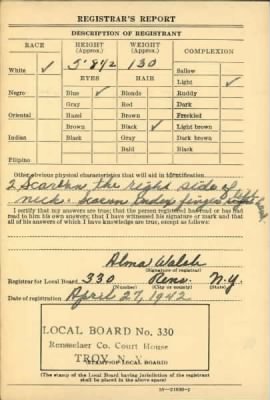 REGISTRAR'S REPORT
DESCRIPTION OF REGISTRANT
RACE HEIGHT (Approx.) WEIGHT (Approx.) COMPLEXION
White ✓ 5' 8 1/2 130 Sallow
EYES HAIR Light ✓
Negro Blue ✓ Blonde Ruddy
Gray Red Dark
Oriental Hazel Brown Freckled
Brown Black ✓ Light brown
Indian Black Gray Dark brown
Bald Black
Filipino
Other obvious physical characteristics that will aid in identification
2 Scars on the right side of
neck. Scar on index finger left hand
I certify that my answers are true; that the person registered has read or has had
read to him his own answers; that I have witnessed his signature or mark and that
all of his answers of which I have knowledge are true, except as follows:
Alma Walsh
(Signature of registrar)
Registrar for Local Board 330 Rens. N.Y.
(Number) (City or county) (State)
Date of registration April 27, 1942
LOCAL BOARD No. 330
Rensselaer Co. Court House
TROY, N. Y.
(STAMP OF LOCAL BOARD)
(The stamp of the Local Board having jurisdiction of the registrant
shall be placed in the above space)